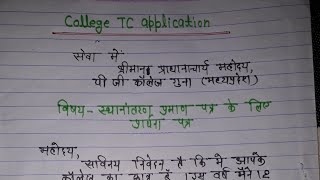 College TC application
सेवा में
श्रीमान् प्राधानाचार्य महोदय,
पी जी कॉलेज गुना (मध्यप्रदेश)
विषय - स्थानांतरण प्रमाण पत्र के लिए
प्रार्थना पत्र
महोदय,
सविनय निवेदन है कि मैं आपके
कॉलेज का छात्र हूँ । इस वर्ष मैंने 12